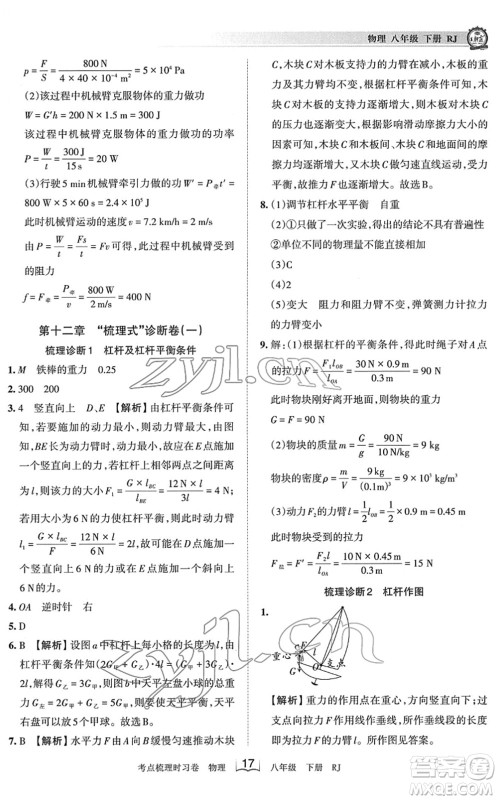 物理 八年级 下册 RJ
p = F/S = 800 N / (4 × 40 × 10⁻⁴ m²) = 5 × 10⁴ Pa
(2)该过程中机械臂克服物体的重力做功
W = G'h = 200 N × 1.5 m = 300 J
该过程中机械臂克服物体的重力做功的功率
P = W/t = 300 J / 15 s = 20 W
(3)行驶 5 min 机械臂牵引力做功 W' = P牵t' =
800 W × 5 × 60 s = 2.4 × 10⁵ J
此时机械臂运动的速度 v = 7.2 km/h = 2 m/s
由 P = W/t = Fs/t = Fv 可得，此时机械臂受到
的阻力
f = F牵 = P牵/v = 800 W / 2 m/s = 400 N
第十二章 “梳理式”诊断卷(一)
梳理诊断1 杠杆及杠杆平衡条件
1. M 铁棒的重力 0.25
2. 300 200
3. 4 竖直向上 D、E 【解析】由杠杆平衡条件可
知，如果要用最小的动力，那么动力臂应最大，如
图，BE长为动力臂，动力最小，此时F的方向竖直
向上。图中，若每个小格的长度为l，则阻力臂长
度为l，所以最小动力 F₁ = G × l_BC / l_BE = 12 N × l / 3l = 4 N；
若用大小为6 N的力使杠杆平衡，则动力臂
l₁ = G × l_BC / F = 12 N × l / 6 N = 2l，此时的作用点可能在
D点，用6 N的力也可能作用在E点斜向右上
方或斜向左上方。
4. OA 逆时针 右
5. D
6. B 【解析】设图a中杠杆上每小格的长度为l，由杠
杆平衡条件可知(2G甲 + G乙) × 4l = (G甲 + 3G乙) ×
2l，解得3G甲 = G乙，图b中天平左盘少球的总重
力为G乙 + G甲 = 3G甲 + 2G甲 = 5G甲，因此，天平
右盘中应放5个甲球。故选B。
7. B 【解析】水平力F由A向B缓慢匀速推动木块
C，木块C对木板的压力的力臂增大，木板的重
力及其力臂均不变，所以根据杠杆平衡条件可
知，木块C对木板的压力逐渐增大，则木板对木块
C的支持力逐渐增大；木板的支持力逐渐增大，木块
C的压力也逐渐增大，根据影响滑动摩擦力大小
的因素可知，木块C与木板之间的滑动摩擦力
也逐渐增大。因为木块C做匀速直线运动，受力
平衡，故F也逐渐增大。故选B。
8. (1)调节杠杆水平平衡 自重
(2)①只做了一次实验，得出的结论不具有普遍
性 ②单位不同的物理量不能直接相加
(3)C
(4)2
(5)变大 阻力和阻力臂不变，弹簧测力计斜
拉时，动力臂变小，动力变大
9. 解：(1)由杠杆平衡条件可知，绳子对杠杆A点
的拉力 F_A = F₁l_OB / l_OA = 30 N × 0.9 m / 0.3 m = 90 N
物块刚好离开地面，故物块的重力
G = F_A = 90 N
(2)物块的质量 m = G/g = 90 N / 10 N/kg = 9 kg
物块的密度 ρ = m/V = 9 kg / (0.1m)³ = 9 × 10³ kg/m³
(3)动力F₂的力臂 l = ½ l_OB = ½ × 0.9 m = 0.45 m
F拉 = F = F₂l / l_OA = 10 N × 0.45 m / 0.3 m = 15 N
梳理诊断2 杠杆作图
1.
F
重心
O
G
支点
【解析】重力的作用点在重心，方向竖直向下；过
支点向拉力F的作用线作垂线段，即为拉力F
的力臂l。
zyjl.cn
考点梳理时习卷 物理 17 八年级 下册 RJ